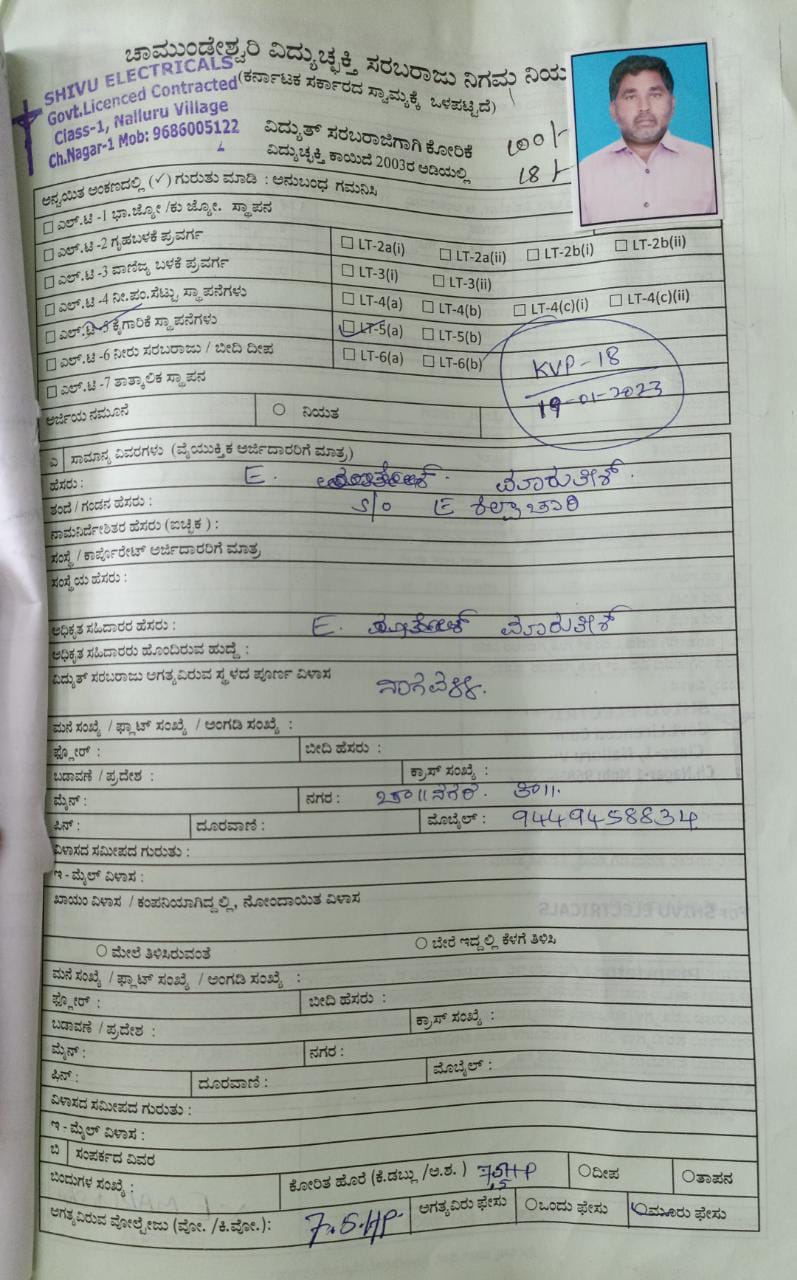 ಚಾಮುಂಡೇಶ್ವರಿ ವಿದ್ಯುಚ್ಛಕ್ತಿ ಸರಬರಾಜು ನಿಗಮ ನಿಯ
(ಕರ್ನಾಟಕ ಸರ್ಕಾರದ ಸ್ವಾಮ್ಯಕ್ಕೆ ಒಳಪಟ್ಟಿದೆ)
SHIVU ELECTRICALS
Govt.Licenced Contracted
Class-1, Nalluru Village
Ch.Nagar-1 Mob: 9686005122
ವಿದ್ಯುತ್ ಸರಬರಾಜಿಗಾಗಿ ಕೋರಿಕೆ
ವಿದ್ಯುಚ್ಛಕ್ತಿ ಕಾಯಿದೆ 2003ರ ಅಡಿಯಲ್ಲಿ
ಅನ್ವಯಿತ ಅಂಕಣದಲ್ಲಿ (✓) ಗುರುತು ಮಾಡಿ : ಅನುಬಂಧ ಗಮನಿಸಿ
☐ ಎಲ್.ಟಿ -1 ಭಾ.ಜ್ಯೋ /ಕು ಜ್ಯೋ. ಸ್ಥಾಪನ
☐ ಎಲ್.ಟಿ -2 ಗೃಹಬಳಕೆ ಪ್ರವರ್ಗ ☐ LT-2a(i) ☐ LT-2a(ii) ☐ LT-2b(i) ☐ LT-2b(ii)
☐ ಎಲ್.ಟಿ -3 ವಾಣಿಜ್ಯ ಬಳಕೆ ಪ್ರವರ್ಗ ☐ LT-3(i) ☐ LT-3(ii)
☐ ಎಲ್.ಟಿ -4 ನೀ.ಪಂ.ಸೆಟ್ಟು ಸ್ಥಾಪನೆಗಳು ☐ LT-4(a) ☐ LT-4(b) ☐ LT-4(c)(i) ☐ LT-4(c)(ii)
☐ ಎಲ್.ಟಿ-5 ಕೈಗಾರಿಕೆ ಸ್ಥಾಪನೆಗಳು ☐ LT-5(a) ☐ LT-5(b)
☐ ಎಲ್.ಟಿ -6 ನೀರು ಸರಬರಾಜು / ಬೀದಿ ದೀಪ ☐ LT-6(a) ☐ LT-6(b)
KVP-18
19-01-2023
☐ ಎಲ್.ಟಿ -7 ತಾತ್ಕಾಲಿಕ ಸ್ಥಾಪನ
ಅರ್ಜಿಯ ನಮೂನೆ ○ ನಿಯತ
ಎ ಸಾಮಾನ್ಯ ವಿವರಗಳು (ವೈಯುಕ್ತಿಕ ಅರ್ಜಿದಾರರಿಗೆ ಮಾತ್ರ)
ಹೆಸರು : E. ಮಾರುತೀಶ್.
ತಂದೆ / ಗಂಡನ ಹೆಸರು : S/o E ಕಲ್ಲಾಚಾರಿ
ನಾಮನಿರ್ದೇಶಿತರ ಹೆಸರು (ಐಚ್ಛಿಕ ) :
ಸಂಸ್ಥೆ / ಕಾರ್ಪೊರೇಟ್ ಅರ್ಜಿದಾರರಿಗೆ ಮಾತ್ರ
ಸಂಸ್ಥೆಯ ಹೆಸರು :
ಅಧಿಕೃತ ಸಹಿದಾರರ ಹೆಸರು : E. ಮಾರುತೀಶ್
ಅಧಿಕೃತ ಸಹಿದಾರರು ಹೊಂದಿರುವ ಹುದ್ದೆ :
ವಿದ್ಯುತ್ ಸರಬರಾಜು ಅಗತ್ಯವಿರುವ ಸ್ಥಳದ ಪೂರ್ಣ ವಿಳಾಸ
ಮನೆ ಸಂಖ್ಯೆ / ಫ್ಲಾಟ್ ಸಂಖ್ಯೆ / ಅಂಗಡಿ ಸಂಖ್ಯೆ :
ಫ್ಲೋರ್ : ಬೀದಿ ಹೆಸರು :
ಬಡಾವಣೆ / ಪ್ರದೇಶ : ಕ್ರಾಸ್ ಸಂಖ್ಯೆ :
ಮೈನ್ : ನಗರ : ಚಾ||ನಗರ. ತಾ||.
ಪಿನ್ : ದೂರವಾಣಿ : ಮೊಬೈಲ್ : 9449458834
ವಿಳಾಸದ ಸಮೀಪದ ಗುರುತು :
ಇ - ಮೈಲ್ ವಿಳಾಸ :
ಖಾಯಂ ವಿಳಾಸ / ಕಂಪನಿಯಾಗಿದ್ದಲ್ಲಿ, ನೋಂದಾಯಿತ ವಿಳಾಸ
○ ಮೇಲೆ ತಿಳಿಸಿರುವಂತೆ ○ ಬೇರೆ ಇದ್ದಲ್ಲಿ ಕೆಳಗೆ ತಿಳಿಸಿ
ಮನೆ ಸಂಖ್ಯೆ / ಫ್ಲಾಟ್ ಸಂಖ್ಯೆ / ಅಂಗಡಿ ಸಂಖ್ಯೆ :
ಫ್ಲೋರ್ : ಬೀದಿ ಹೆಸರು :
ಬಡಾವಣೆ / ಪ್ರದೇಶ : ಕ್ರಾಸ್ ಸಂಖ್ಯೆ :
ಮೈನ್ : ನಗರ :
ಪಿನ್ : ದೂರವಾಣಿ : ಮೊಬೈಲ್ :
ವಿಳಾಸದ ಸಮೀಪದ ಗುರುತು :
ಇ - ಮೈಲ್ ವಿಳಾಸ :
ಬಿ ಸಂಪರ್ಕದ ವಿವರ
ಬಿಂದುಗಳ ಸಂಖ್ಯೆ : ಕೋರಿತ ಹೊರೆ (ಕೆ.ಡಬ್ಲು /ಅ.ಶ. ) 7.5HP ○ದೀಪ ○ತಾಪನ
ಅಗತ್ಯವಿರುವ ವೋಲ್ಟೇಜು (ವೋ. /ಕಿ.ವೋ.): 7.5.HP. ಅಗತ್ಯವಿರು ಫೇಸು ○ಒಂದು ಫೇಸು ○ಮೂರು ಫೇಸು